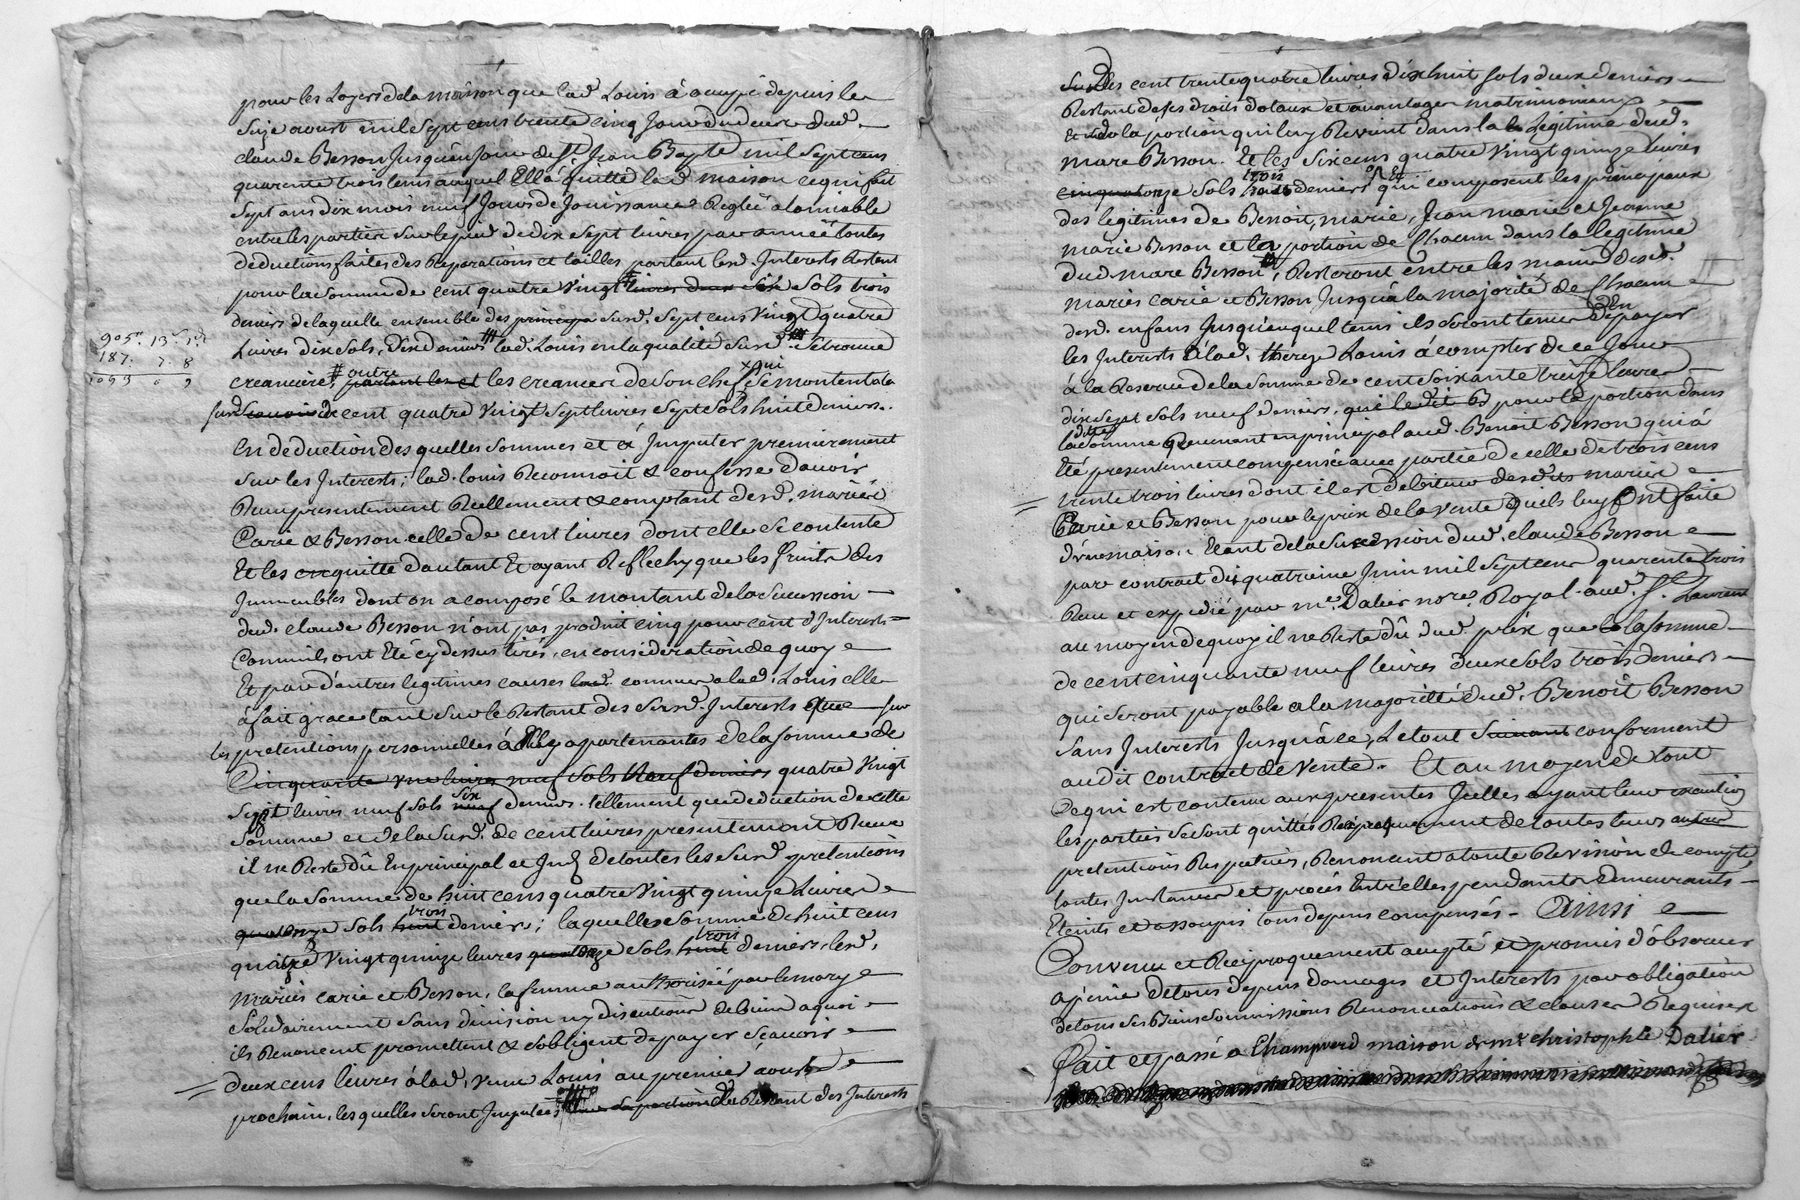 pour les Loyers de la maison que lad. Louis à occupé depuis le
seize aoust mil sept cens trente cinq Jour du deces dud.
claude Besson Jusqu'au Jour de St Jean Bapte mil sept cens
quarente trois tems auquel Ell'a quitté lad maison ce qui fait
sept ans dix mois neuf Jours de Jouissance Reglée a lamiable
entre les parties sur le pied de dix sept livres par année toutes
deductions faites des Reparations et tailles, partant lesd. Interests Restent
pour la somme de cent quatre vingt # livres deux six sols trois
deniers de laquelle ensemble des principa susd. sept cens vingt quatre
Livres dix sols, dix deniers lad. Louis en la qualité susd. se trouve
905. 13. 1.
187. 7. 8
1093 0 9
creanciere, # outre partant les et les creances de son chef x qui se montent a la
susd cent quatre vingt sept livres sept sols huit deniers.
En deduction des quelles sommes et à Imputer premierement
sur les Interests, lad. Louis Reconnoit & confesse d'avoir
Reçu presentement Reellement & comptant desd. mariés
Carie & Besson celle de cent livres dont elle se contente
Et les en quitte d'autant Et ayant Reflechy que les fruits des
Immeubles dont on a composé le montant de la succession
dud. claude Besson n'ont pas produit cinq pour cent d'Interests
Comm'ils ont été cy dessus tirés, en considération de quoy
Et pour d'autres legitimes causes lad. connues a lad. Louis elle
à fait grace tant sur le Restant des susd. Interests que sur
les pretentions personnelles à Elle appartenantes de la somme de
Cinquante une livres neuf sols neuf deniers quatre vingt
sept livres neuf sols six neuf deniers. tellement que deduction de cette
somme et de la susd. de cent livres presentement Reçue
il ne Reste dû En principal et Int. de toutes les susd. pretentions
que la somme de huit cens quatre vingt quinze Livres
quatorze sols trois huit deniers; laquelle somme de huit cens
quatre vingt quinze livres quatorze sols trois huit deniers, lesd.
mariés carie et Besson, la femme authorisée par le mary
solidairement sans division ny discution de bien a quoi
ils Renoncent promettent & s'obligent de payer sçavoir
deux cens livres à lad. veuve Louis au premier aoust
prochain, les quelles seront Imputées sur la portion du Restant des Interests
Sur les cent trente quatre livres dix huit sols deux deniers
Restant de ses droits dotaux et avantages matrimoniaux
Et de la portion qui luy Revient dans la Legitime dud.
marc Besson. Et les six cens quatre vingt quinze livres
cinq quatorze sols trois huit deniers qui composent les principaux
des legitimes de Benoit, marie, Jean marie et Jeanne
marie Besson et la portion de Chacun dans la legitime
dud. marc Besson, Resteront entre les mains desd.
mariés carié et Besson Jusqu'a la majorité de Chacun
desd. enfans Jusqu'auquel tems ils seront tenus d'en payer
les Interests à lad. thereze Louis à compter de ce Jour
à la Reserve de la somme de cent soixante treize livres
dix sept sols neuf deniers, qui led't Bs pour la portion dans
laditte somme Revenant en principal aud. Benoit Besson qui à
été presentement compensée avec partie de celle de trois cens
trente trois livres dont il est debiteur desdits mariés
Carie et Besson pour le prix de la vente qu'ils luy Ont faite
d'une maison Etant de la succession dud. claude Besson
par contract du quatrieme Juin mil sept cens quarente trois
Reçu et expédié par me. Dalier nore. Royal aud. St. Laurent
au moyen de quoy il ne Reste dû dud. prix que la somme
de cent cinquante neuf livres deux sols trois deniers
qui seront payable a la majorité dud. Benoît Besson
sans Interests Jusqu'à ce, Le tout suivant conforment
audit contract de vente. Et au moyen de tout
ce qui est contenu aux presentes Icelles ayant leur execution
les parties se sont quittés Reciproquement de toutes leurs autres
pretentions Respectives, Renoncent a toute Revision de compte,
toutes Instances et procés Entr'elles pendants demeurants
Eteints et assoupis tous depens compensés. Ainsi
Convenu et Reciproquement accepté et promis d'observer
a peine de tous depens domages et Interests par obligation
de tous ses Biens soumissions Renonciations & clauses Requises
Fait et passé a Champverd maison de mr christophle Dalier